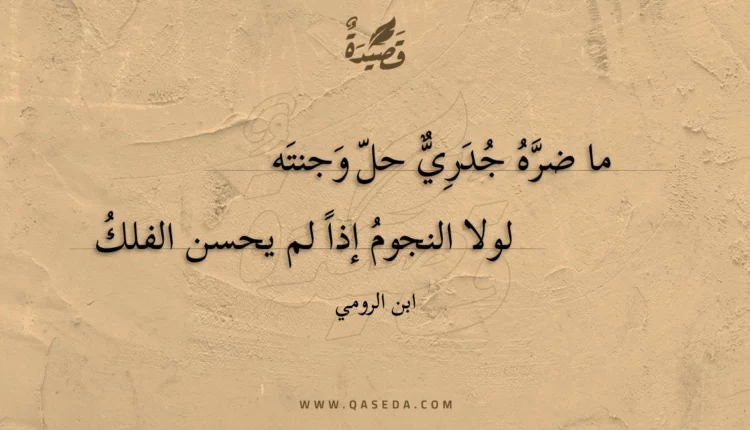 قَصِيْدَةٌ
ما ضرَّهُ جُدَرِيٌّ حلّ وَجنتَه
لولا النجومُ إذاً لم يحسن الفلكُ
ابن الرومي
WWW.QASEDA.COM